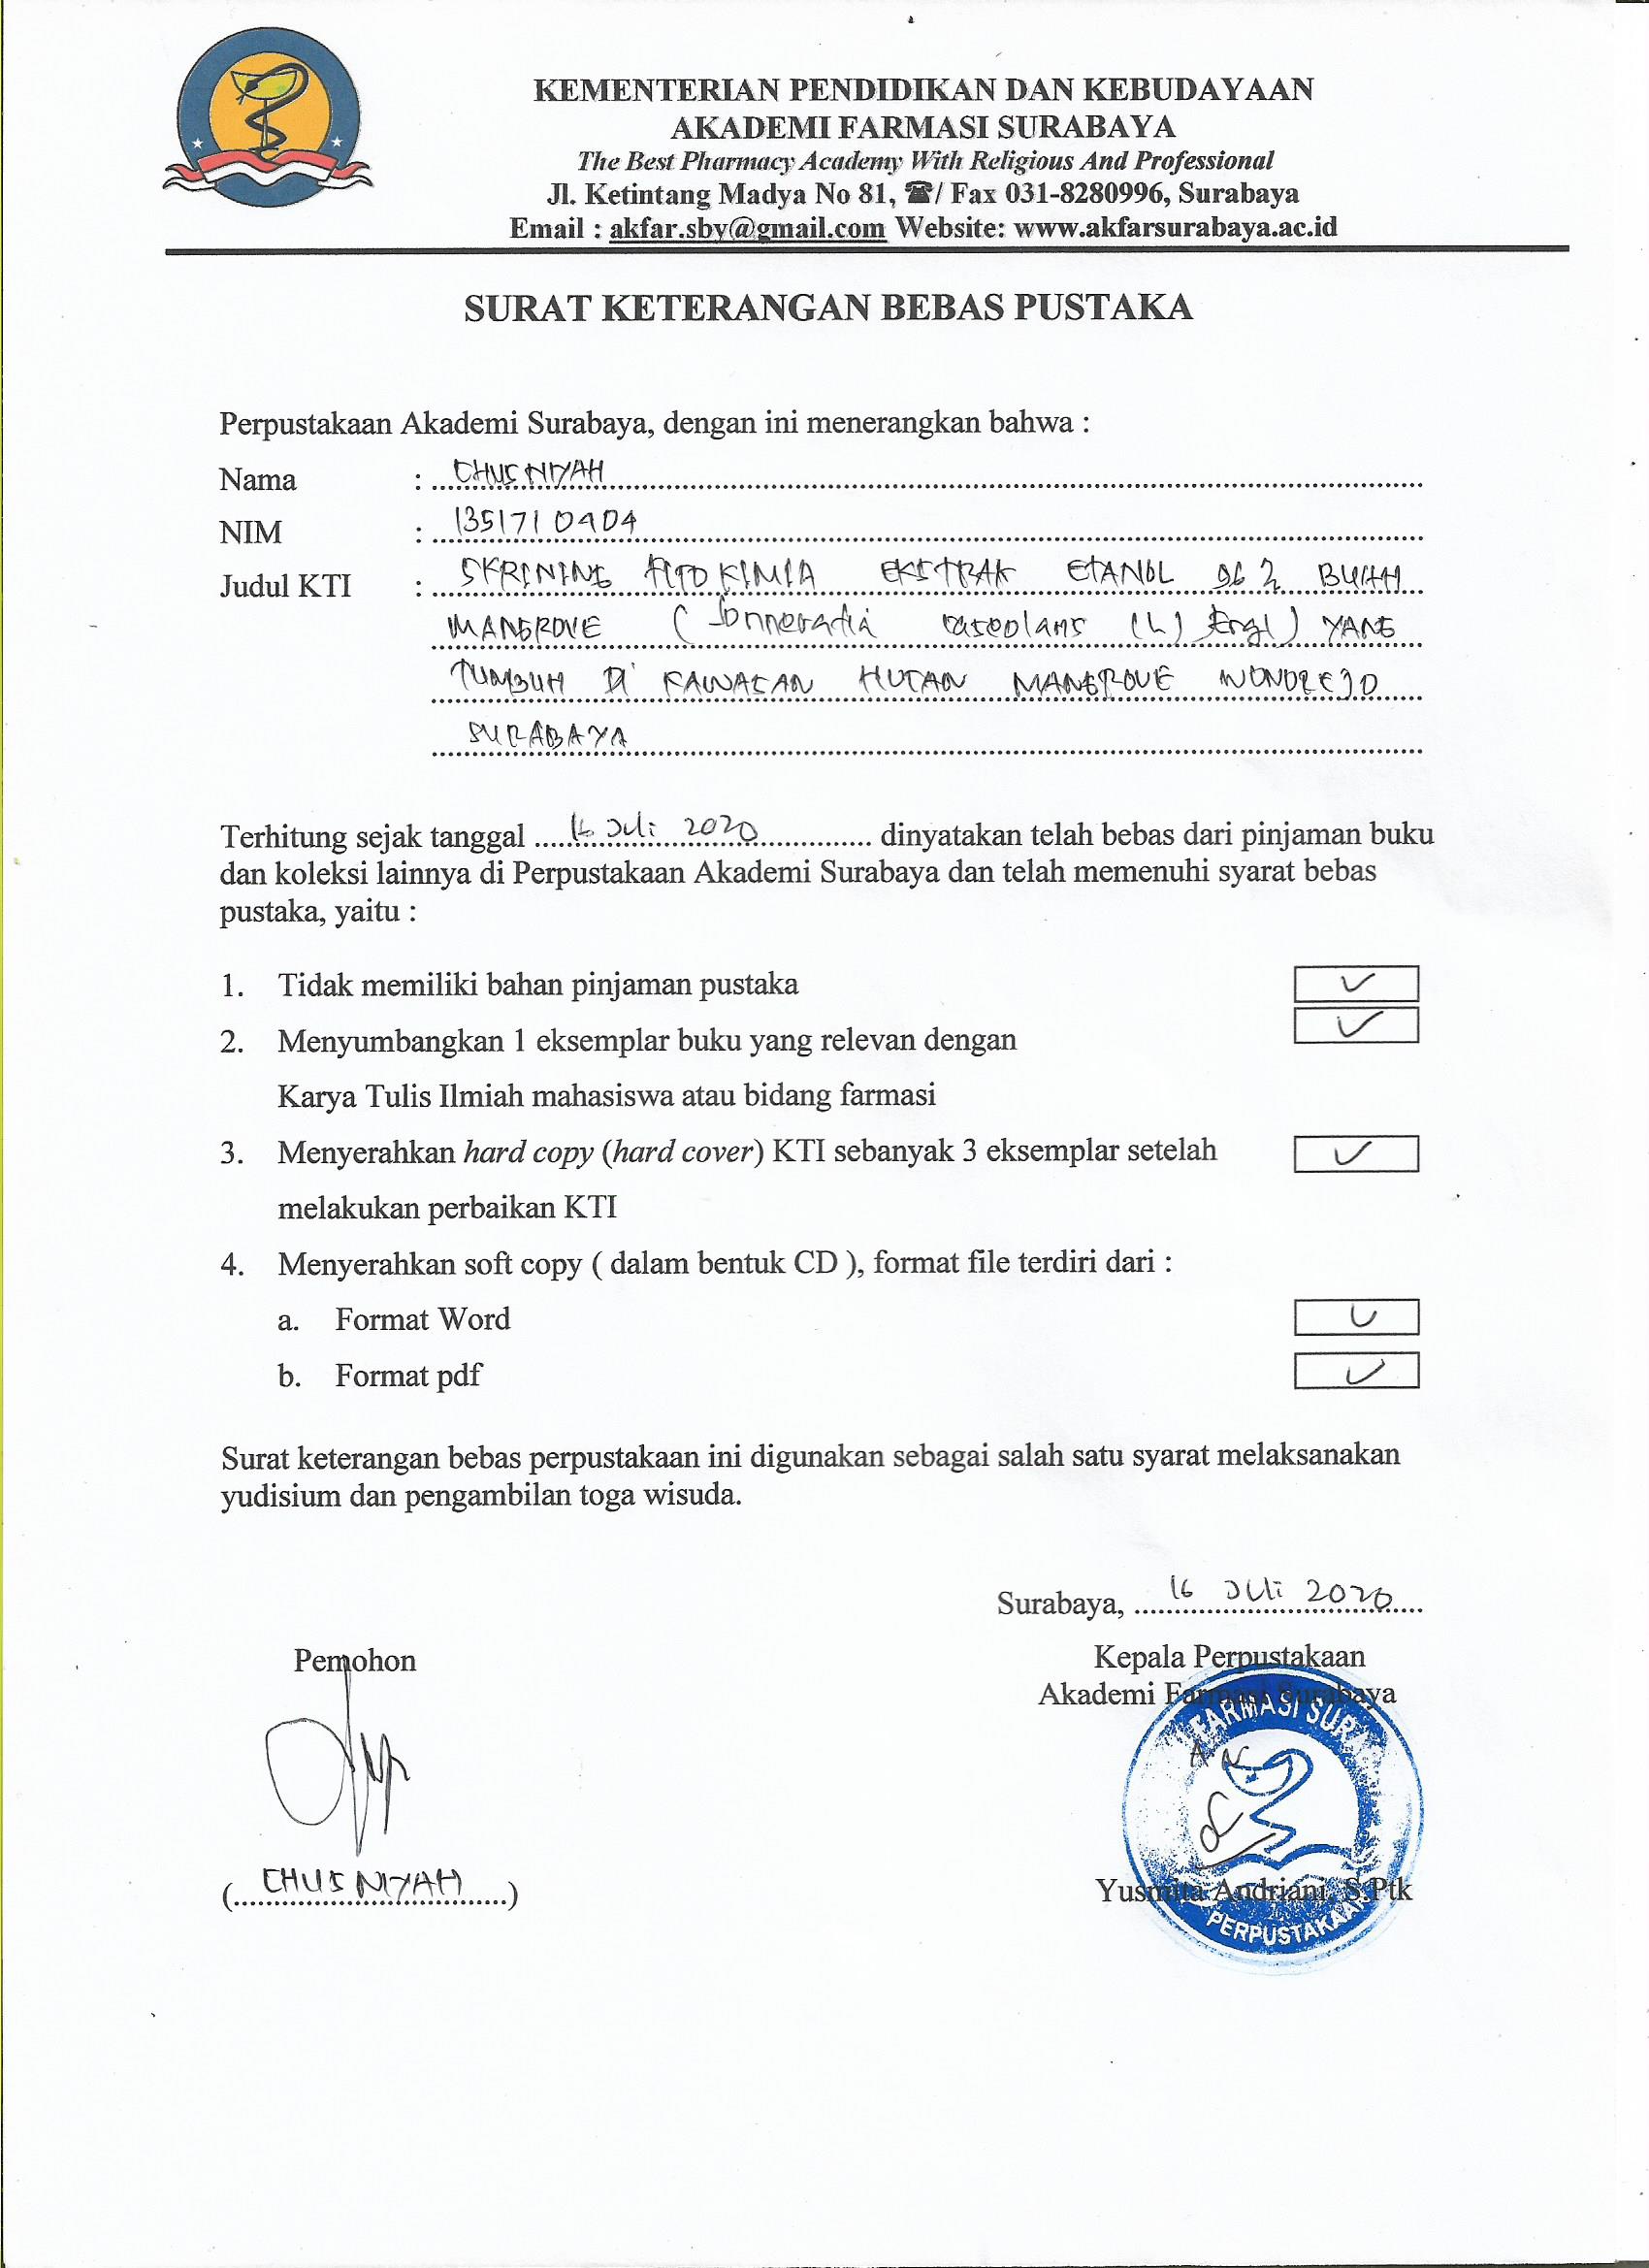 KEMENTERIAN PENDIDIKAN DAN KEBUDAYAAN
AKADEMI FARMASI SURABAYA
The Best Pharmacy Academy With Religious And Professional
Jl. Ketintang Madya No 81, ☎/ Fax 031-8280996, Surabaya
Email : akfar.sby@gmail.com Website: www.akfarsurabaya.ac.id
SURAT KETERANGAN BEBAS PUSTAKA
Perpustakaan Akademi Surabaya, dengan ini menerangkan bahwa :
Nama : CHUSNIYAH
NIM : 1351710404
Judul KTI : SKRINING FITOKIMIA EKSTRAK ETANOL 96% BUAH
MANGROVE (Sonneratia caseolaris (L) Engl) YANG
TUMBUH DI KAWASAN HUTAN MANGROVE WONOREJO
SURABAYA
Terhitung sejak tanggal 16 Juli 2020 dinyatakan telah bebas dari pinjaman buku
dan koleksi lainnya di Perpustakaan Akademi Surabaya dan telah memenuhi syarat bebas
pustaka, yaitu :
1. Tidak memiliki bahan pinjaman pustaka ✓
2. Menyumbangkan 1 eksemplar buku yang relevan dengan ✓
Karya Tulis Ilmiah mahasiswa atau bidang farmasi
3. Menyerahkan hard copy (hard cover) KTI sebanyak 3 eksemplar setelah ✓
melakukan perbaikan KTI
4. Menyerahkan soft copy ( dalam bentuk CD ), format file terdiri dari :
a. Format Word ✓
b. Format pdf ✓
Surat keterangan bebas perpustakaan ini digunakan sebagai salah satu syarat melaksanakan
yudisium dan pengambilan toga wisuda.
Surabaya, 16 Juli 2020
Pemohon
Kepala Perpustakaan
Akademi Farmasi Surabaya
FARMASI SURA
A.n
(CHUSNIYAH)
Yusmita Andriani, S.Ptk
PERPUSTAKAAN